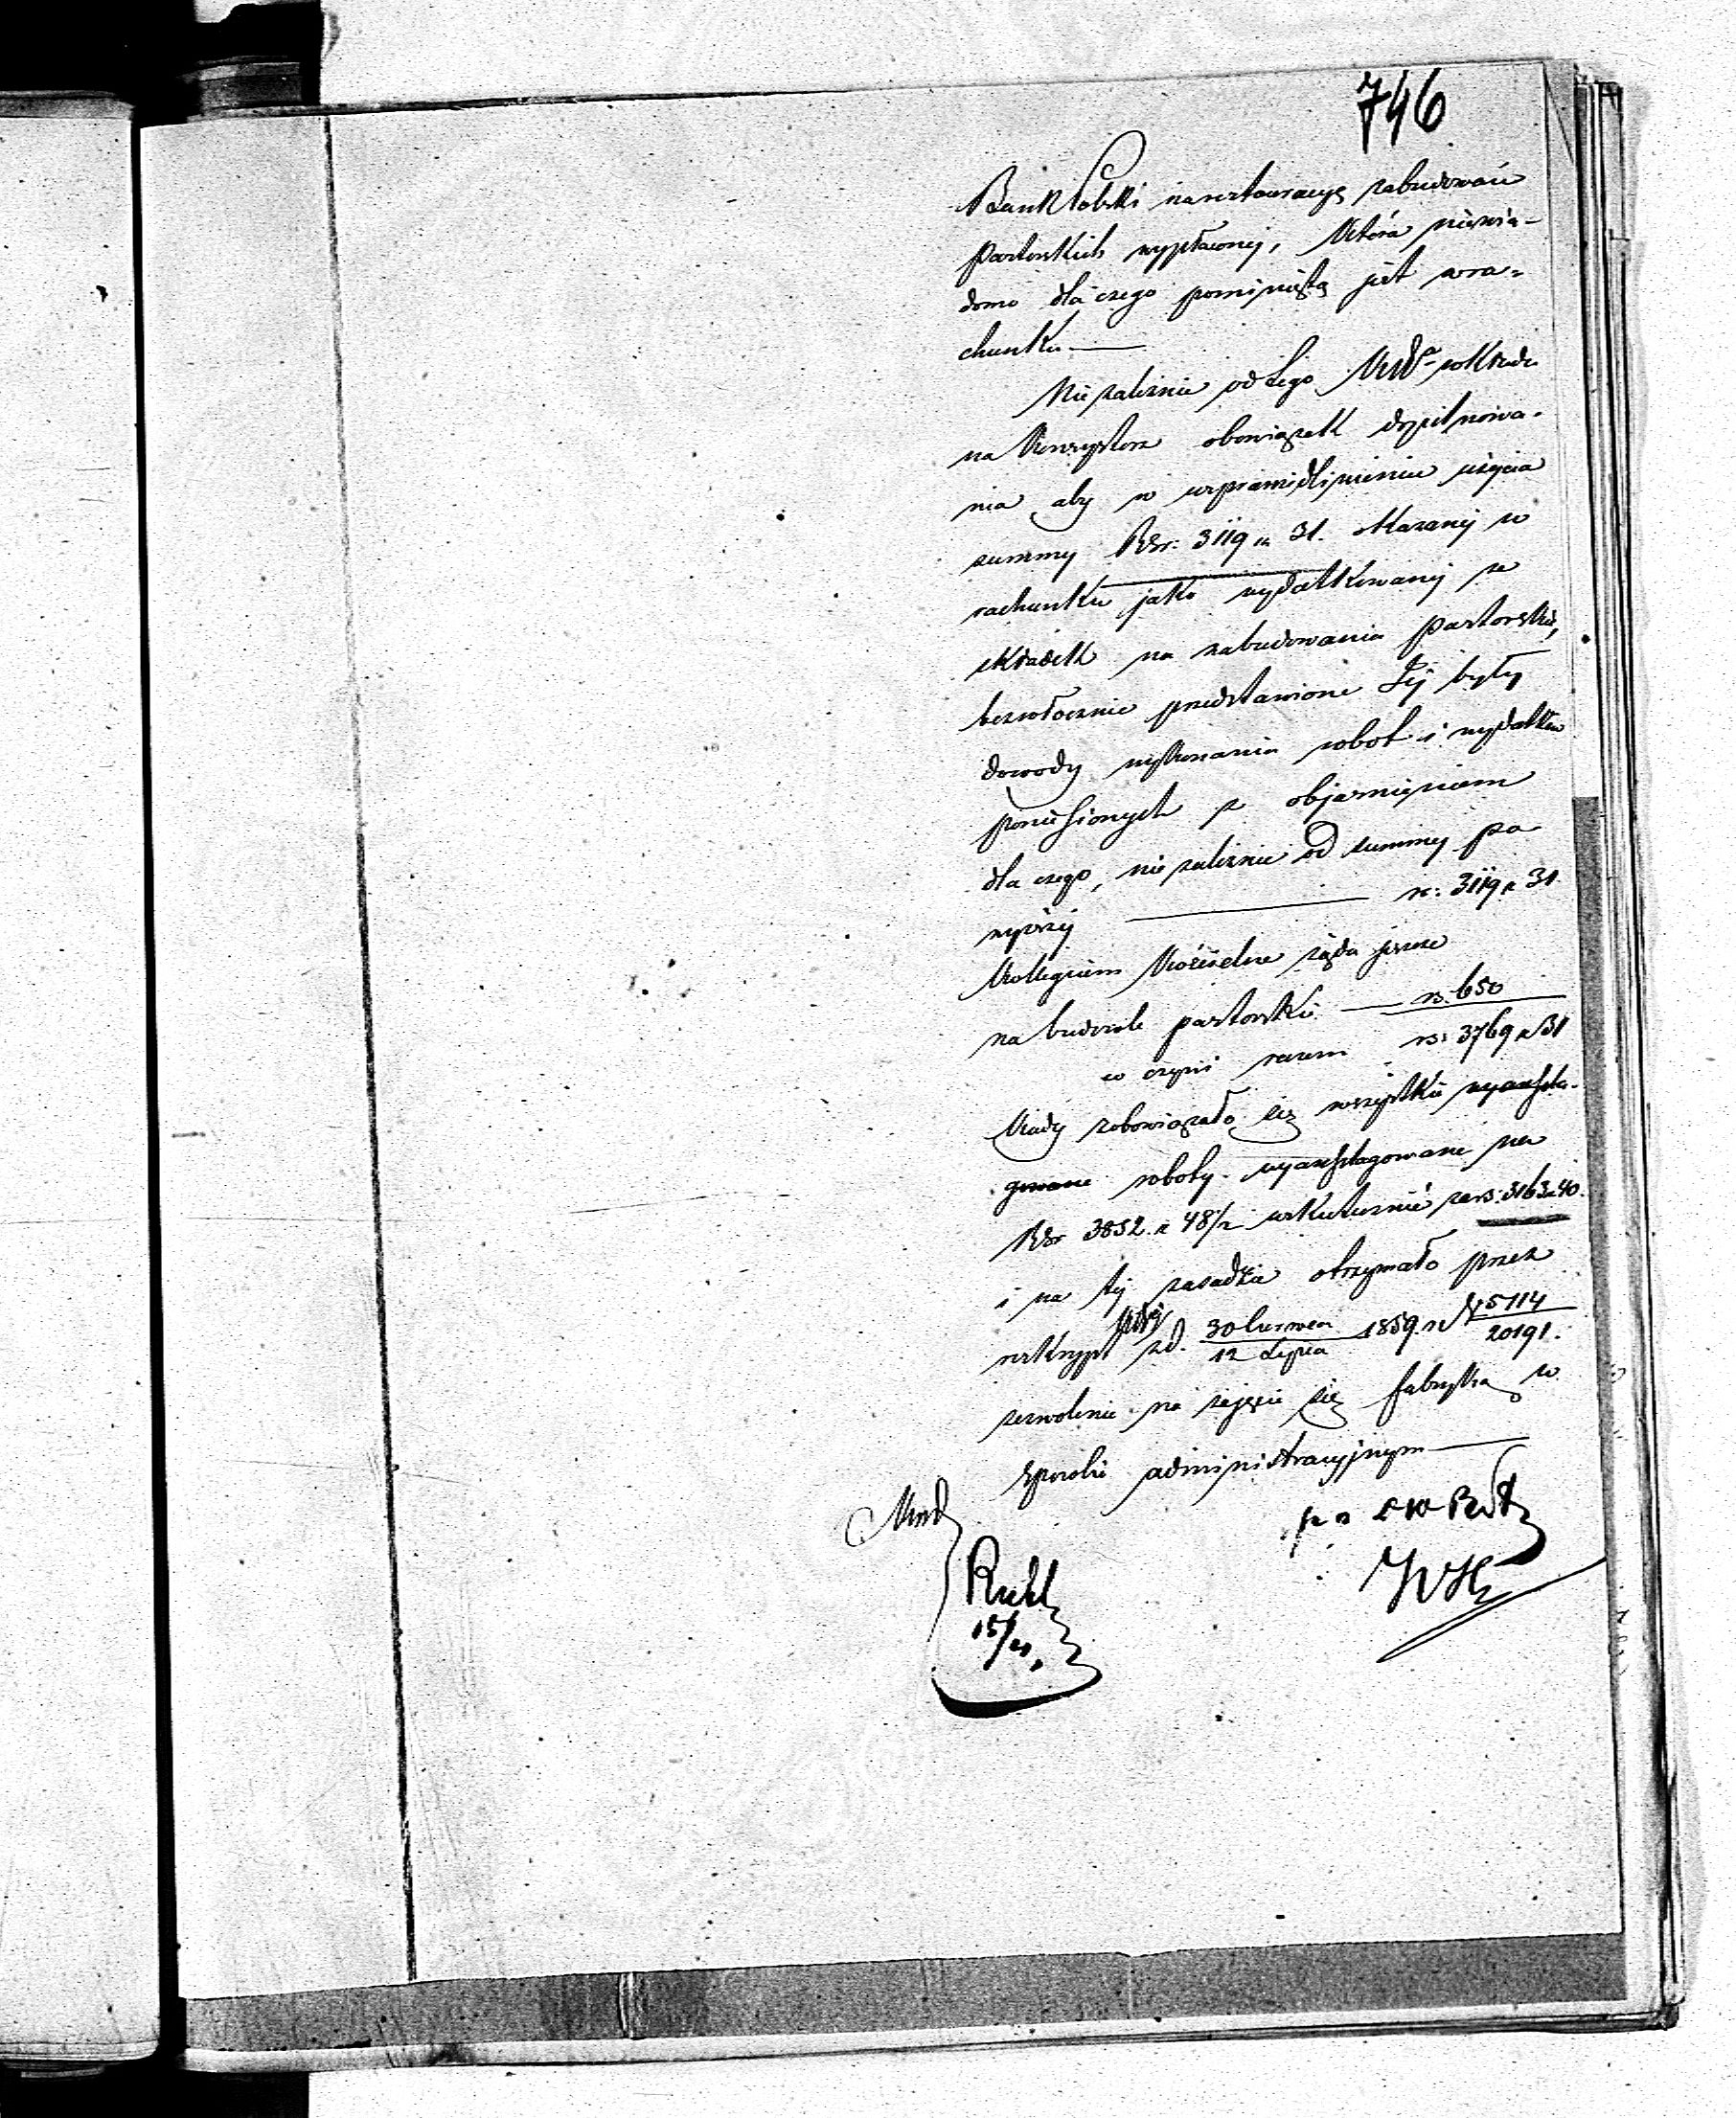 746
Bank Polski na restauracyę zabudowań
Pastorskich wypłaconej, która niewia-
domo dla czego pominiętą jest w ra-
chunku —
Niezależnie od tego wkłada
na Konsystorz obowiązek dopilnowa-
nia aby w usprawiedliwieniu użycia
summy RSr: 3119 k 31. okazanej w
rachunku jako wydatkowanej ze
składek na zabudowania pastorskie,
bezwłocznie przedstawione Jej były
dowody wykonania robot i wydatków
poniesionych z objaśnieniem
dla czego, niezależnie od summy po-
wyższej — rs: 3119 k 31.
Kollegium Kościelne żąda jeszcze
na budowle pastorskie — rs. 650
co czyni razem rs: 3769 k 31
Kiedy zobowiązało się wszystkie wyanszla-
gowane roboty wyanszlagowane na
RSr 3852. k 48½ uskutecznić za rs: 3163 k 40.
i na tej zasadzie otrzymało przez
reskrypt z d. 30 Czerwca / 12 Lipca 1859. r. N 5114 / 20191.
zezwolenie na zajęcie się fabryką w
sposobie administracyjnym —
15/